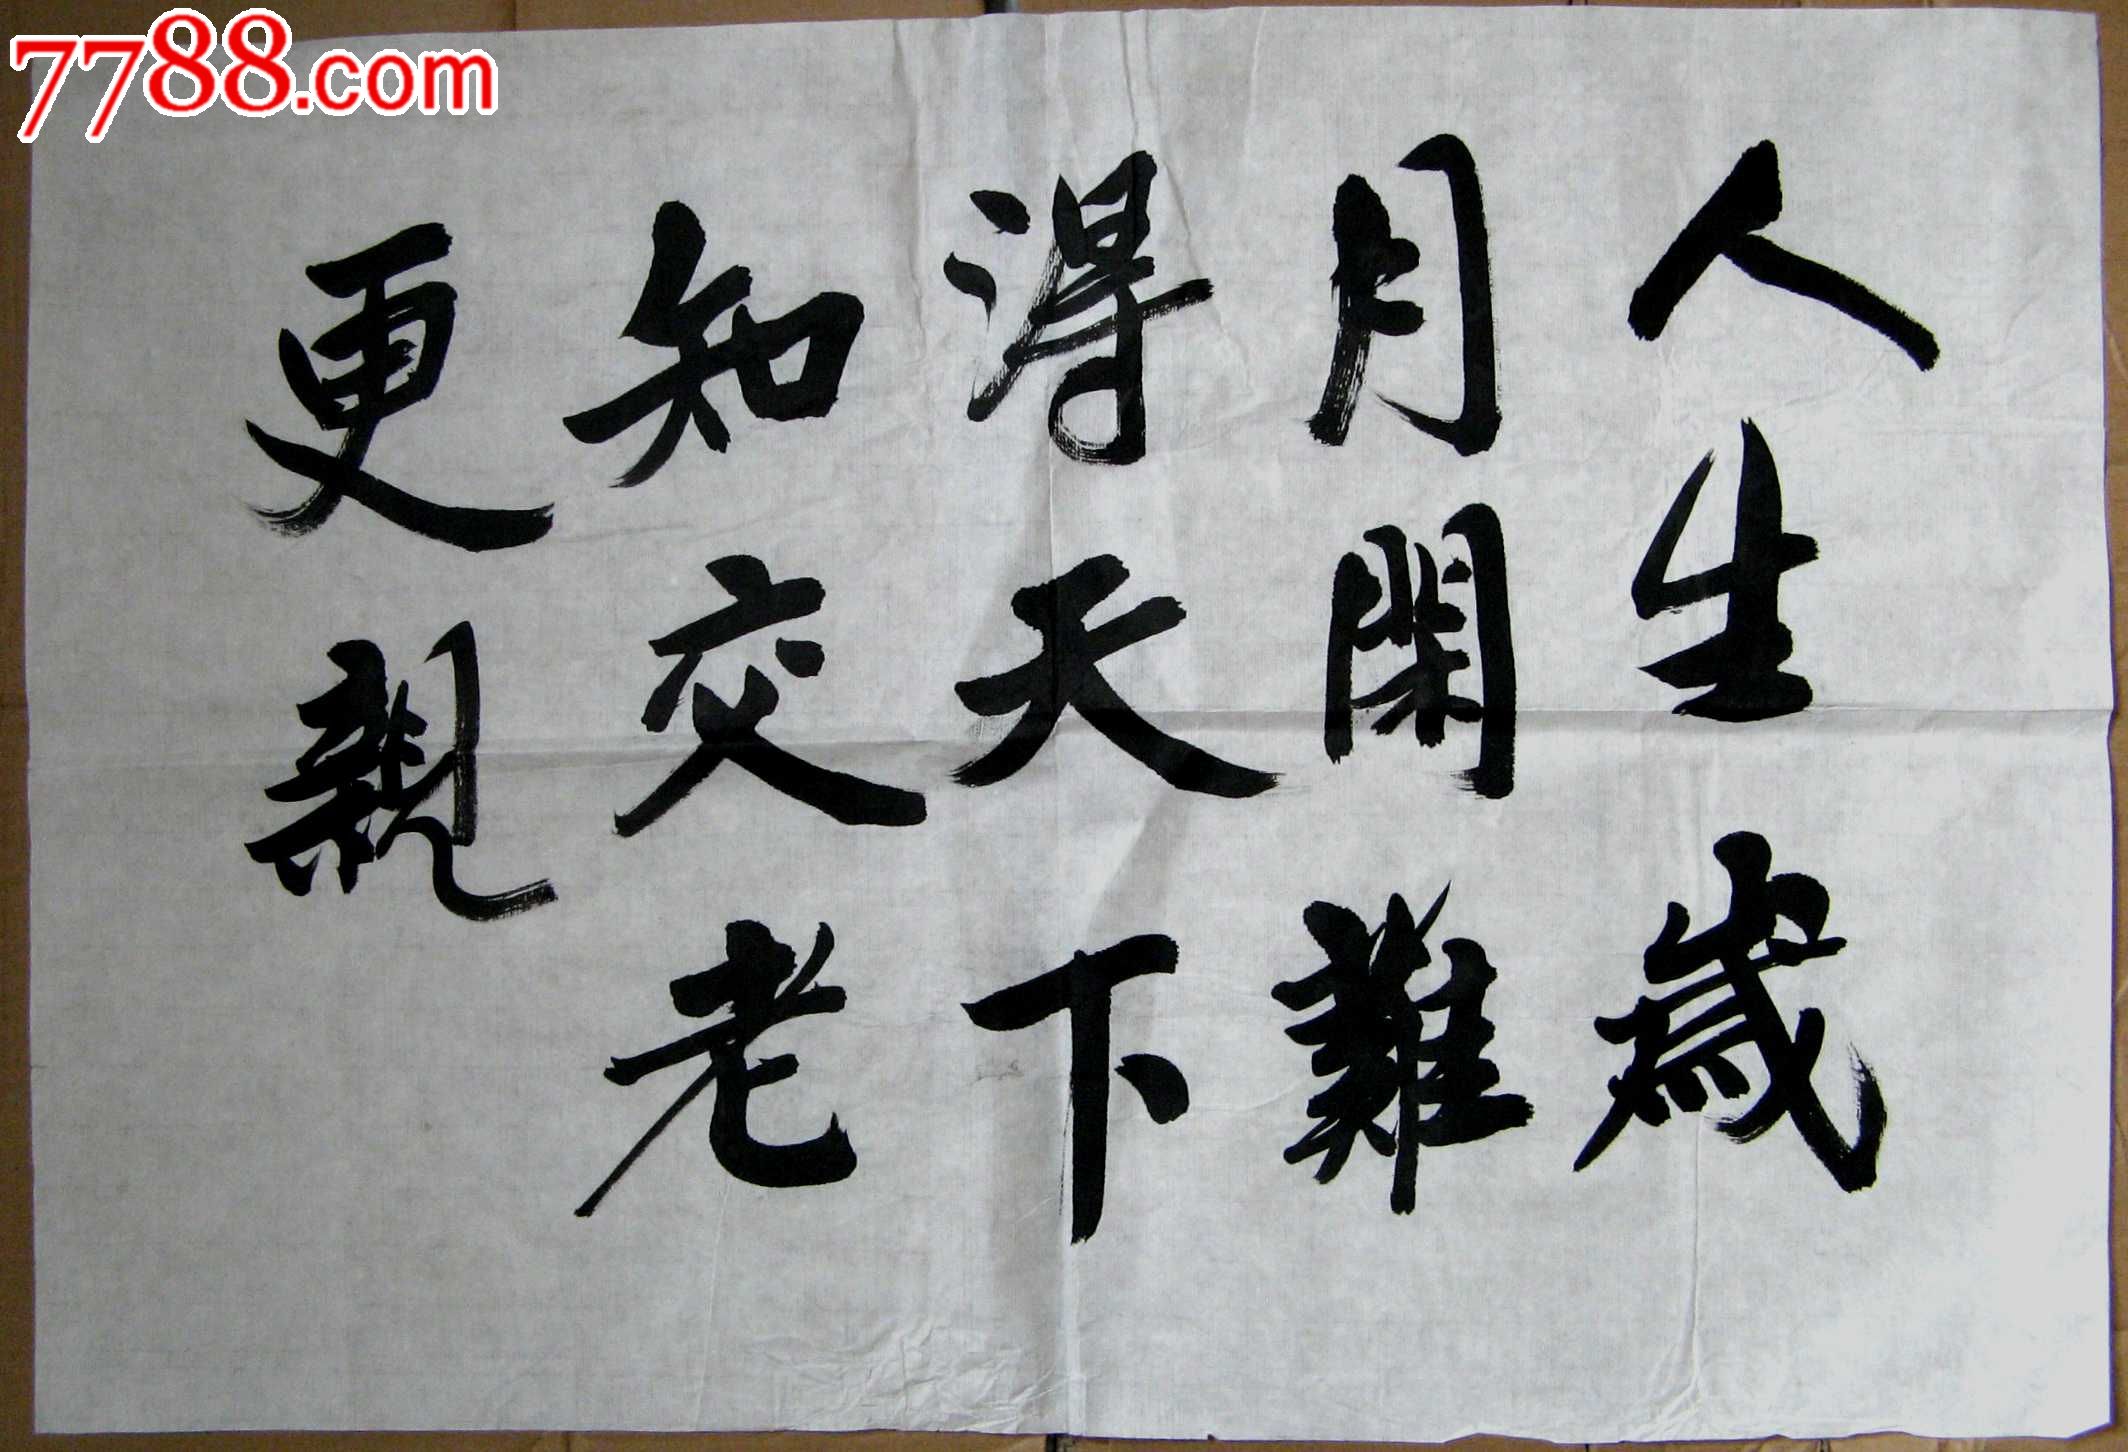 7788.com
人生歲
月閑難
得天下
知交老
更親